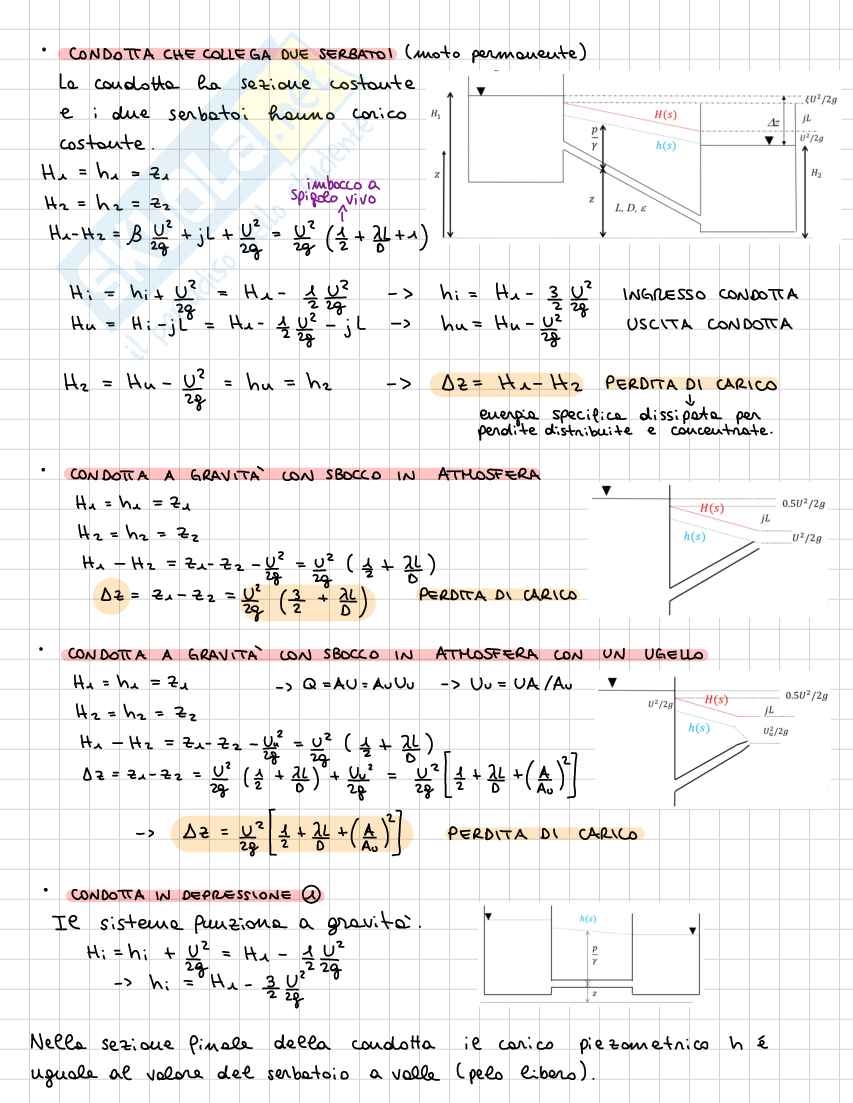 • CONDOTTA CHE COLLEGA DUE SERBATOI (moto permanente)
La condotta ha sezione costante
e i due serbatoi hanno carico
costante.
H₁ = h₁ = z₁
H₂ = h₂ = z₂
imbocco a
spigolo vivo
H₁-H₂ = β U²/2g + jL + U²/2g = U²/2g (1/2 + λL/D + 1)
H₁
z
H(s)
h(s)
p/γ
z
L, D, ε
Δz
ξU²/2g
jL
U²/2g
H₂
Hi = hi + U²/2g = H₁ - 1/2 U²/2g -> hi = H₁ - 3/2 U²/2g INGRESSO CONDOTTA
Hu = Hi - jL = H₁ - 1/2 U²/2g - jL -> hu = Hu - U²/2g USCITA CONDOTTA
H₂ = Hu - U²/2g = hu = h₂ -> Δz = H₁ - H₂ PERDITA DI CARICO
energia specifica dissipata per
perdite distribuite e concentrate.
• CONDOTTA A GRAVITA' CON SBOCCO IN ATMOSFERA
H₁ = h₁ = z₁
H₂ = h₂ = z₂
H₁ - H₂ = z₁ - z₂ - U²/2g = U²/2g (1/2 + λL/D)
Δz = z₁ - z₂ = U²/2g (3/2 + λL/D) PERDITA DI CARICO
H(s)
h(s)
0.5U²/2g
jL
U²/2g
• CONDOTTA A GRAVITA' CON SBOCCO IN ATMOSFERA CON UN UGELLO
H₁ = h₁ = z₁ -> Q = AU = AuUu -> Uu = UA/Au
H₂ = h₂ = z₂
H₁ - H₂ = z₁ - z₂ - Uu²/2g = U²/2g (1/2 + λL/D)
Δz = z₁ - z₂ = U²/2g (1/2 + λL/D) + Uu²/2g = U²/2g [1/2 + λL/D + (A/Au)²]
-> Δz = U²/2g [1/2 + λL/D + (A/Au)²] PERDITA DI CARICO
U²/2g
H(s)
h(s)
0.5U²/2g
jL
Uu²/2g
• CONDOTTA IN DEPRESSIONE ①
Il sistema funziona a gravità.
Hi = hi + U²/2g = H₁ - 1/2 U²/2g
-> hi = H₁ - 3/2 U²/2g
h(s)
p/γ
z
Nella sezione finale della condotta il carico piezometrico h é
uguale al valore del serbatoio a valle (pelo libero).